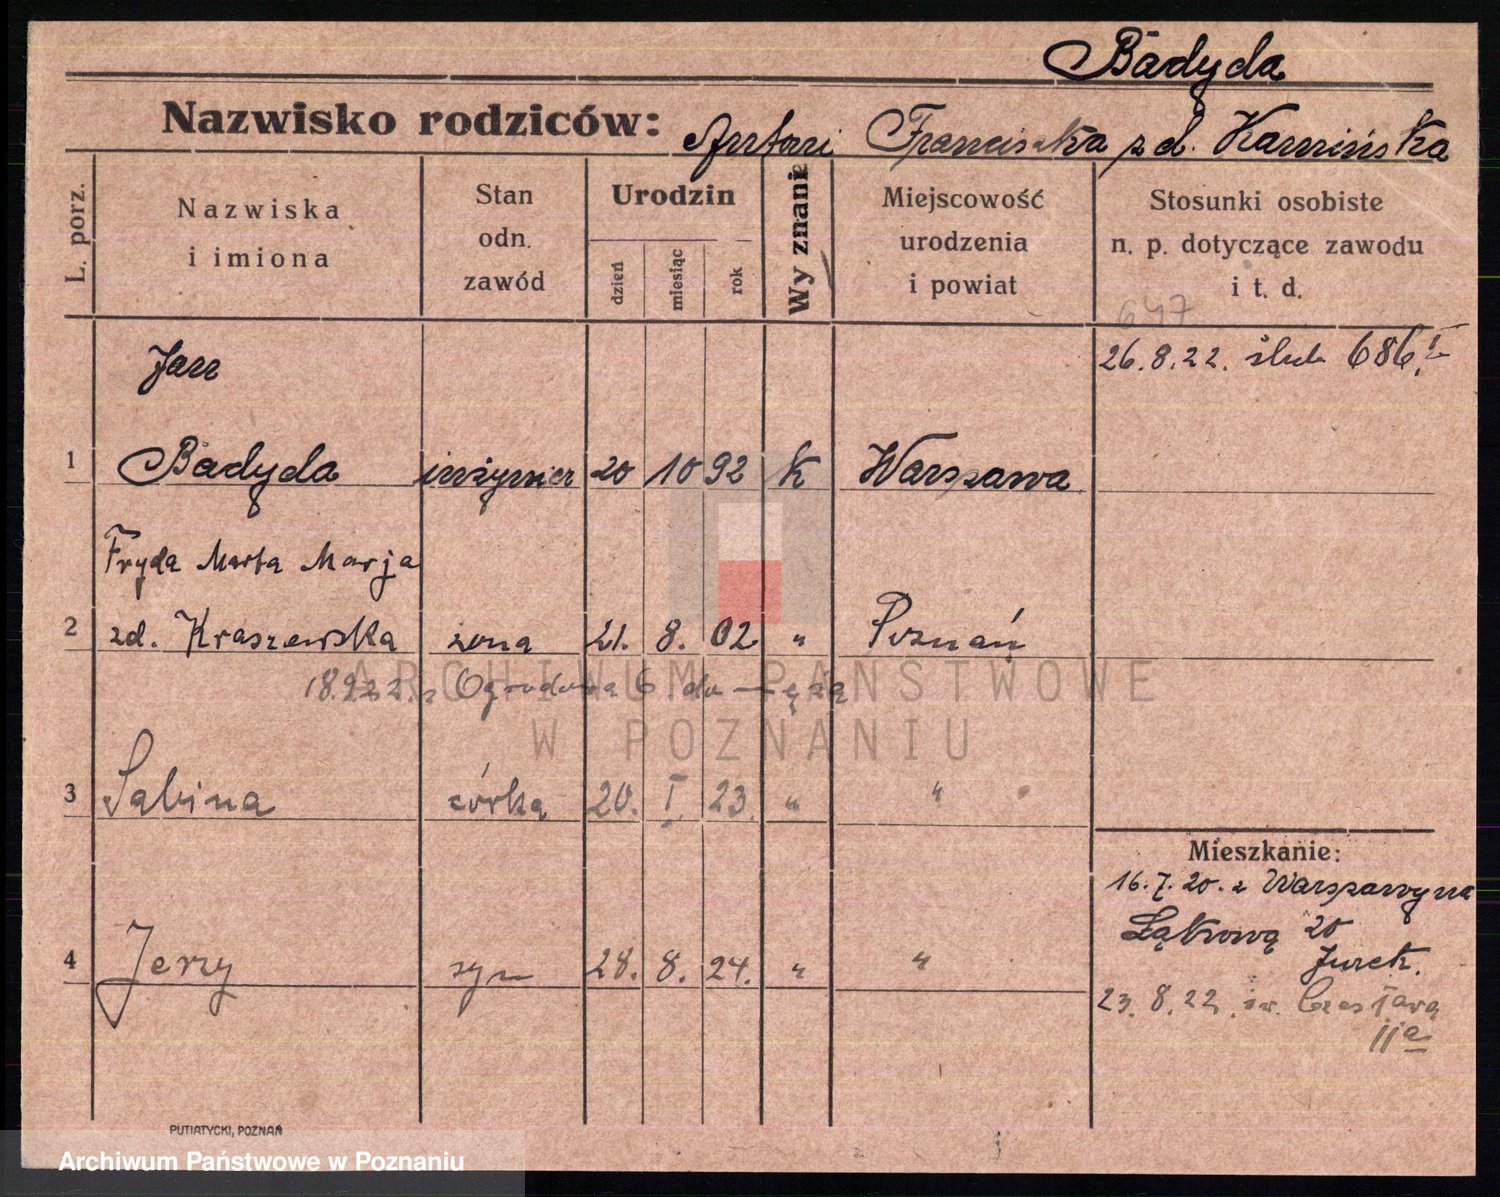 Badyda
Nazwisko rodziców: Antoni Franciszka z d. Kamińska
L. porz.
Nazwiska
i imiona
Stan
odn.
zawód
Urodzin
dzień
miesiąc
rok
Wyznanie
Miejscowość
urodzenia
i powiat
Stosunki osobiste
n. p. dotyczące zawodu
i t. d.
647
26.8.22. ślub 686.
Jan
1 Badyda inżynier 20 10 92 K Warszawa
Fryda Marta Marja
2 zd. Kraszewska żona 21. 8. 02 " Poznań
18.9.22. z Ogrodowa 6 do męża
3 Sabina córka 20. I. 23. " "
4 Jerzy syn 28. 8. 24. " "
Mieszkanie:
16.7.20. z Warszawy na
Łąkową 20
Jurek.
23.8.22. św. Czesława
11a
PUTIATYCKI, POZNAŃ
ARCHIWUM PAŃSTWOWE
W POZNANIU
Archiwum Państwowe w Poznaniu